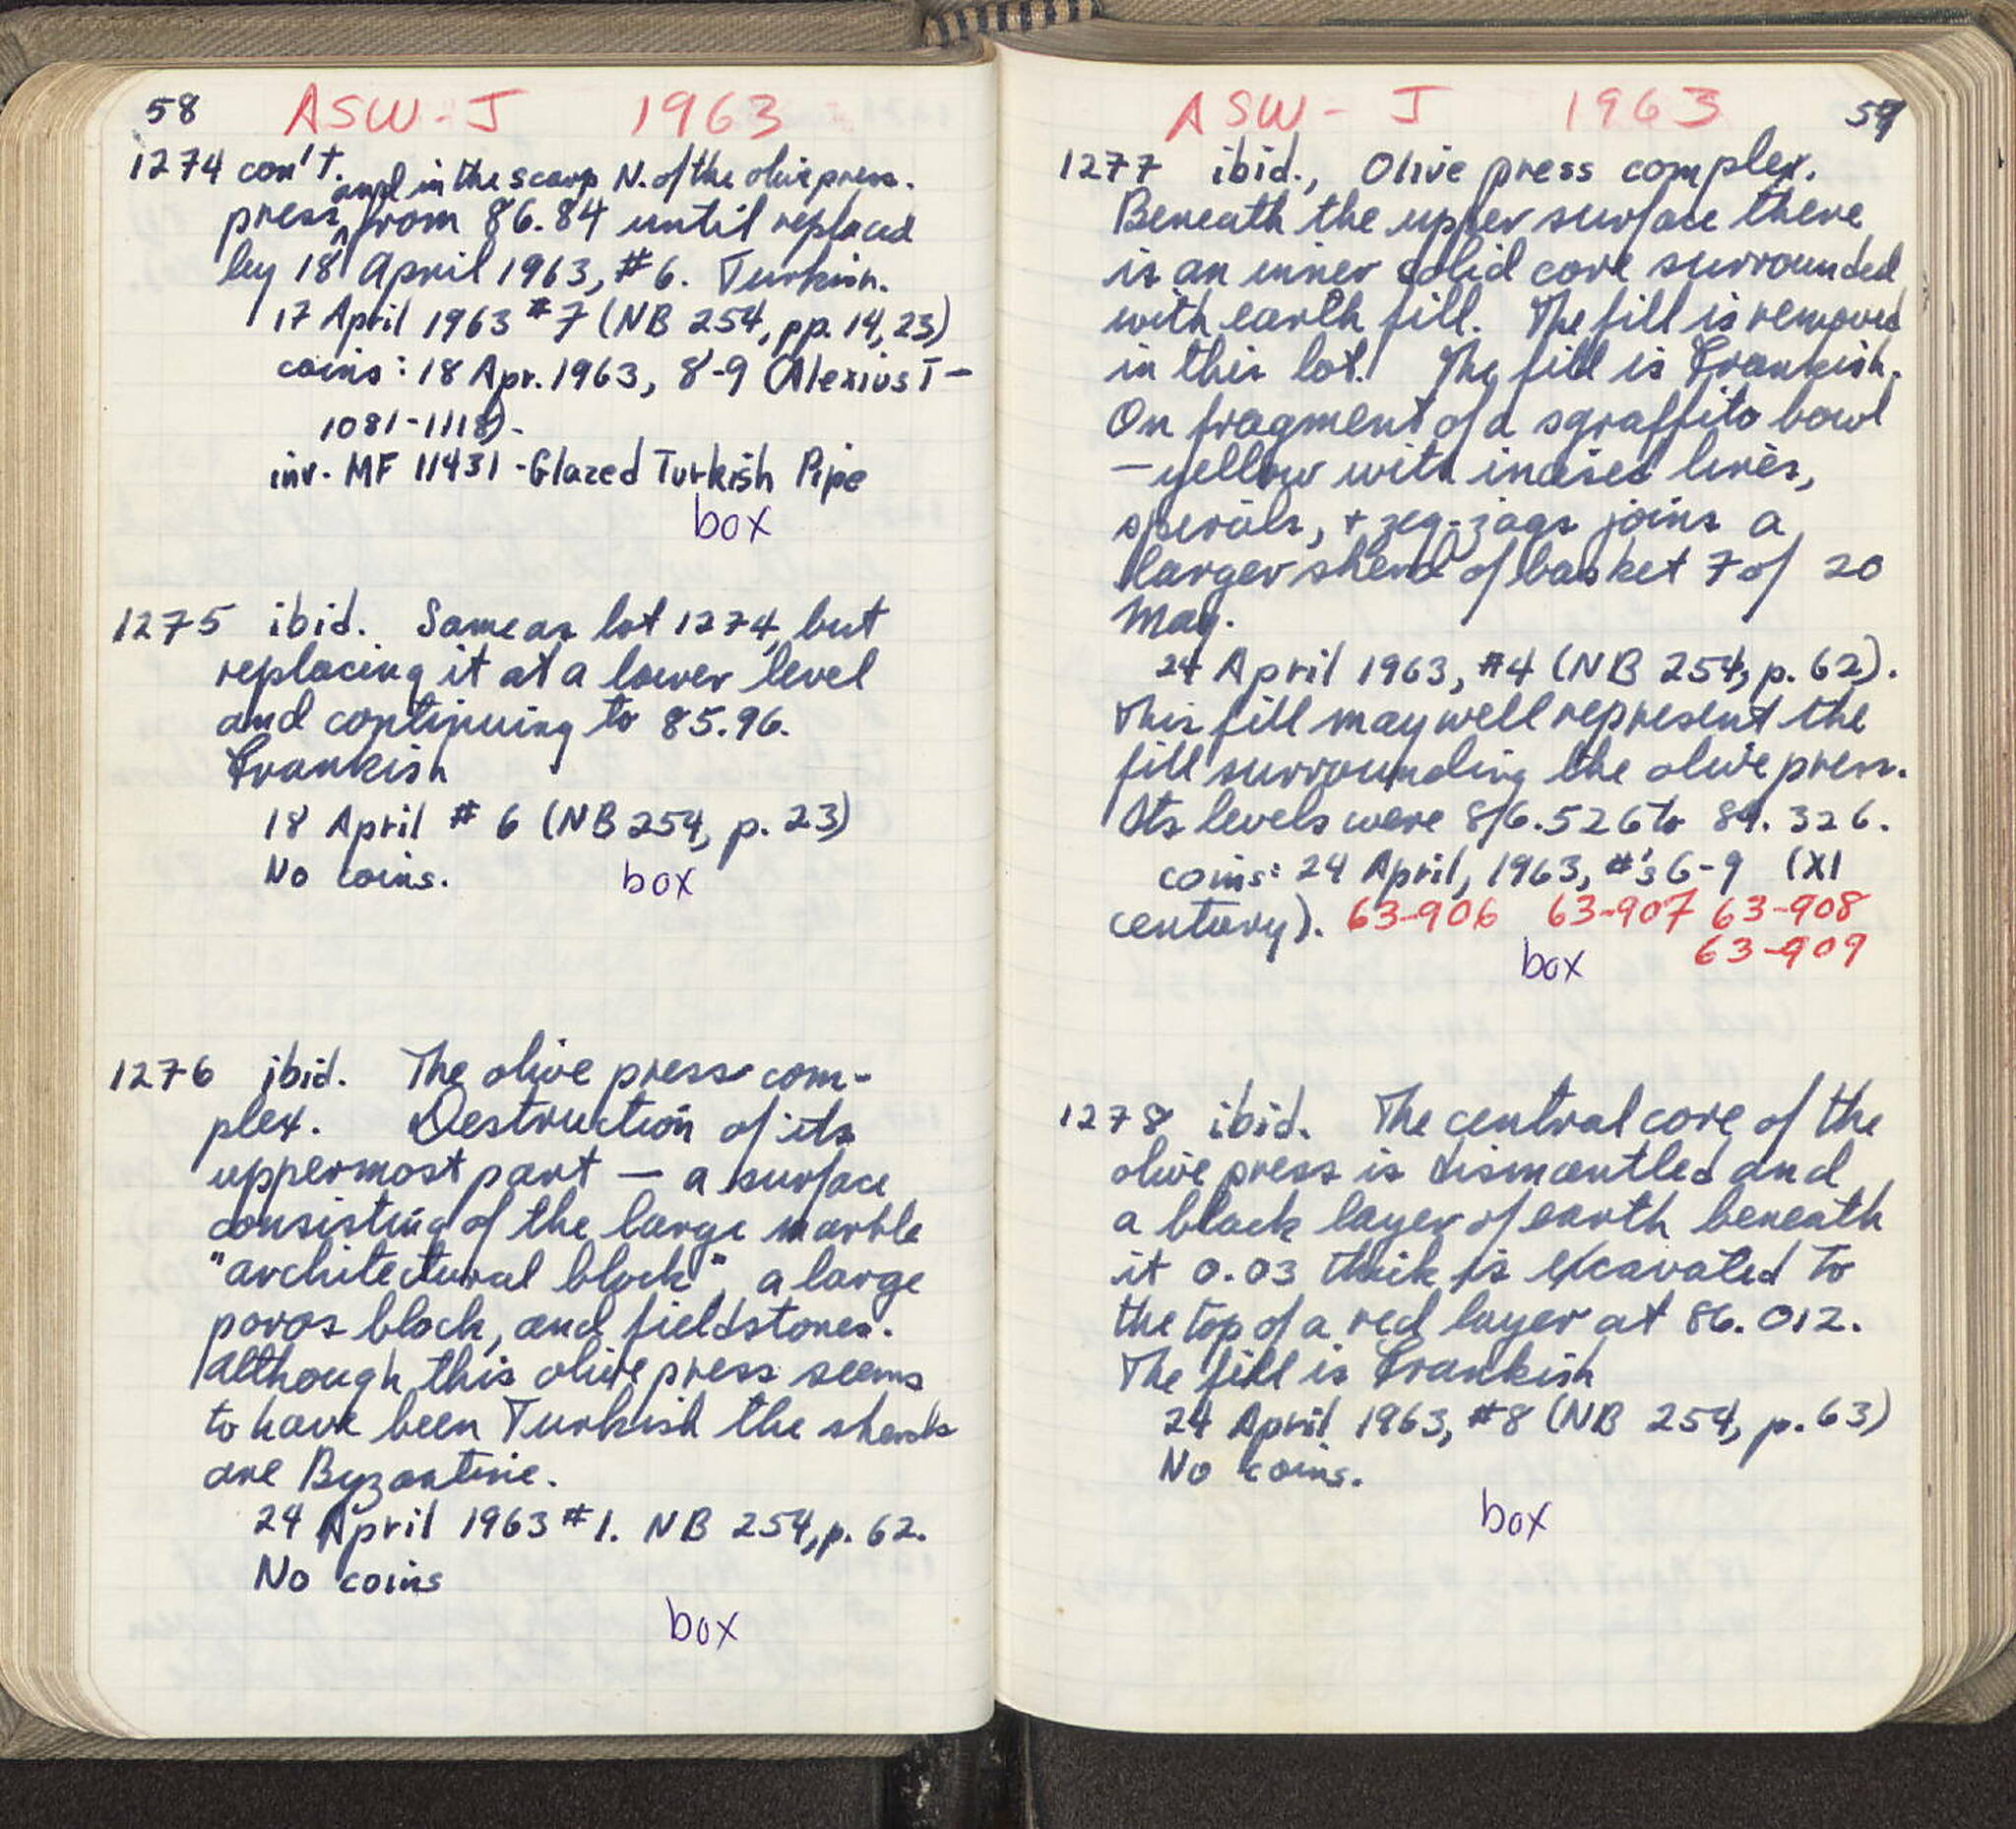 58 ASW-J 1963
1274 con't. and in the scarp N. of the olive press.
press, from 86.84 until replaced
by 18 April 1963, #6. Turkish.
17 April 1963 #7 (NB 254, pp. 14, 23)
coins: 18 Apr. 1963, 8-9 (Alexius I -
1081-1118).
inv. MF 11431 - Glazed Turkish Pipe
box
1275 ibid. Same as lot 1274, but
replacing it at a lower level
and continuing to 85.96.
Frankish
18 April #6 (NB 254, p. 23)
No coins. box
1276 ibid. The olive press com-
plex. Destruction of its
uppermost part — a surface
consisting of the large marble
"architectural block", a large
poros block, and fieldstones.
Although this olive press seems
to have been Turkish the sherds
are Byzantine.
24 April 1963 #1. NB 254, p. 62.
No coins
box
ASW-J 1963 59
1277 ibid., Olive press complex.
Beneath the upper surface there
is an inner solid core surrounded
with earth fill. The fill is removed
in this lot. The fill is Frankish.
On fragment of a sgraffito bowl
— yellow with incised lines,
spirals, + zig-zags joins a
larger sherd of basket 7 of 20
May.
24 April 1963, #4 (NB 254, p. 62).
This fill may well represent the
fill surrounding the olive press.
Its levels were 86.526 to 89.326.
coins: 24 April, 1963, #'s 6-9 (XI
century). 63-906 63-907 63-908
box 63-909
1278 ibid. The central core of the
olive press is dismantled and
a black layer of earth beneath
it 0.03 thick is excavated to
the top of a red layer at 86.012.
The fill is Frankish
24 April 1963, #8 (NB 254, p. 63)
No coins.
box